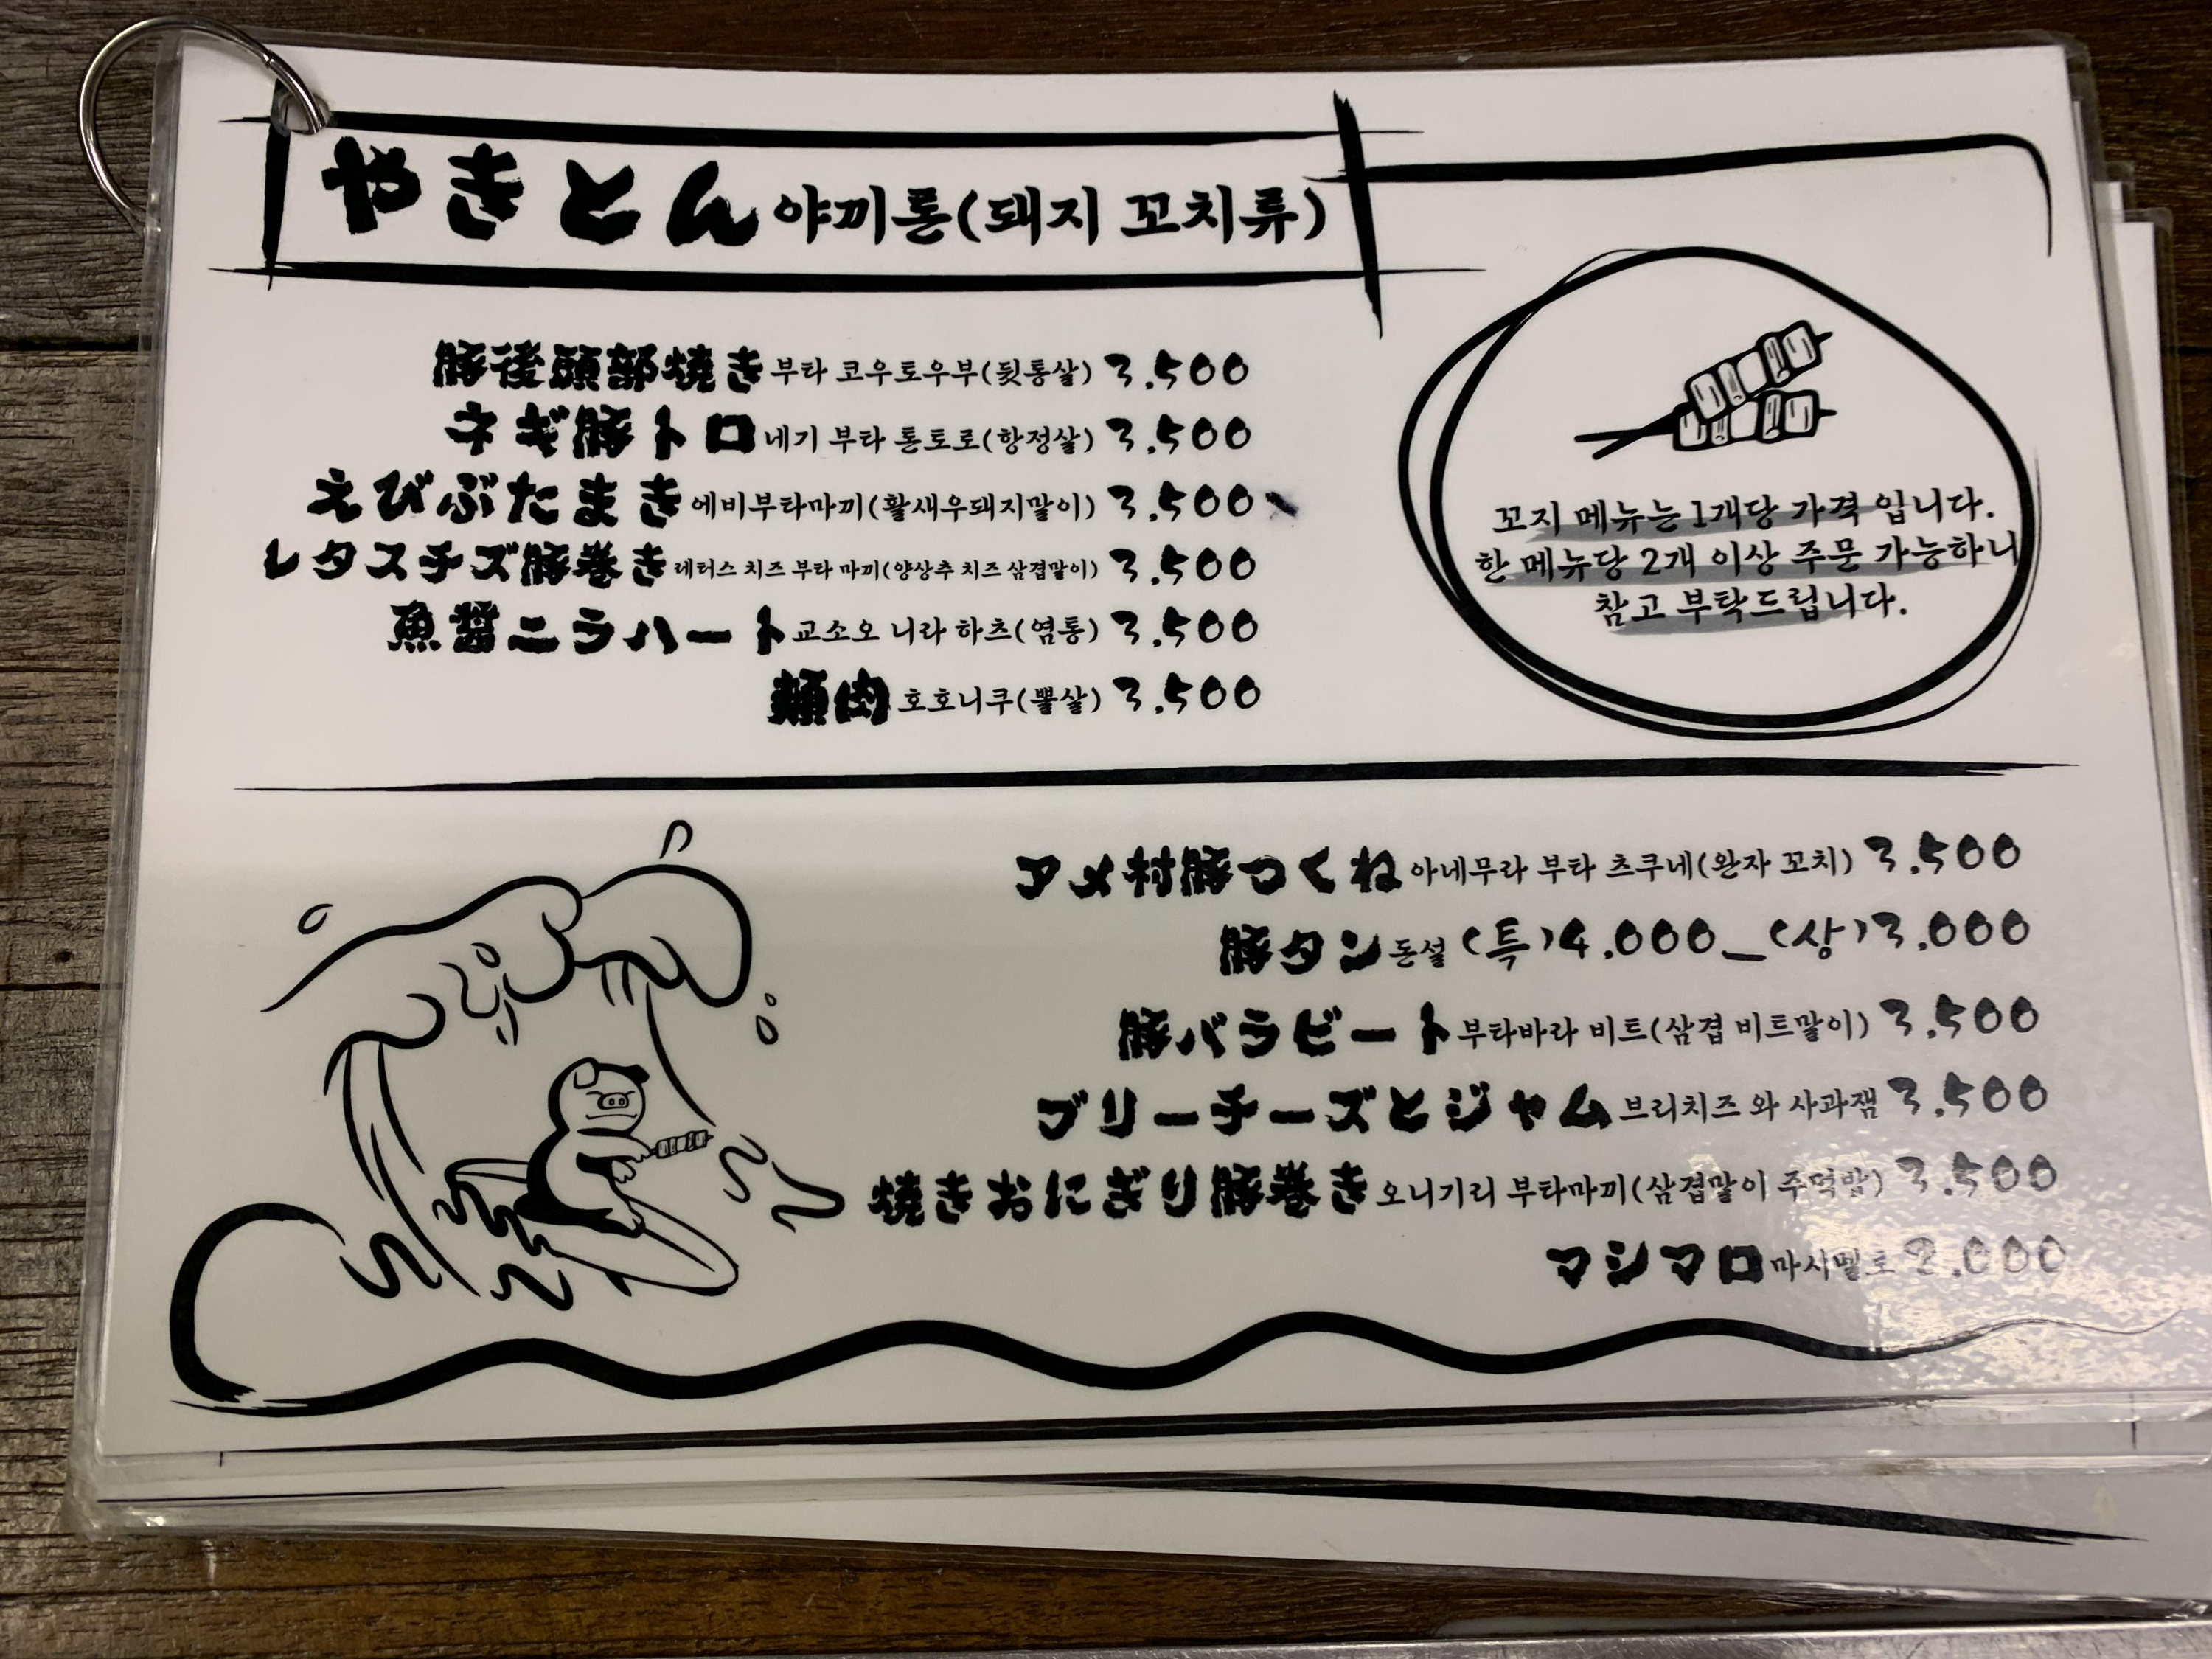 やきとん 야끼톤(돼지 꼬치류)
豚後頭部焼き 부타 코우토우부(뒷통살) 3.500
ネギ豚トロ 네기 부타 톤토로(항정살) 3.500
えびぶたまき 에비부타마끼(활새우돼지말이) 3.500
レタスチズ豚巻き 레터스 치즈 부타 마끼(양상추 치즈 삼겹말이) 3.500
魚醤ニラハート 교소오 니라 하츠(염통) 3.500
頬肉 호호니쿠(뽈살) 3.500
꼬지 메뉴는 1개당 가격 입니다.
한 메뉴당 2개 이상 주문 가능하니
참고 부탁드립니다.
アメ村豚つくね 아네무라 부타 츠쿠네(완자 꼬치) 3.500
豚タン 돈설 (특)4.000_(상)3.000
豚バラビート 부타바라 비트(삼겹 비트말이) 3.500
ブリーチーズとジャム 브리치즈 와 사과잼 3.500
焼きおにぎり豚巻き 오니기리 부타마끼(삼겹말이 주먹밥) 3.500
マシマロ 마시멜로 2.000